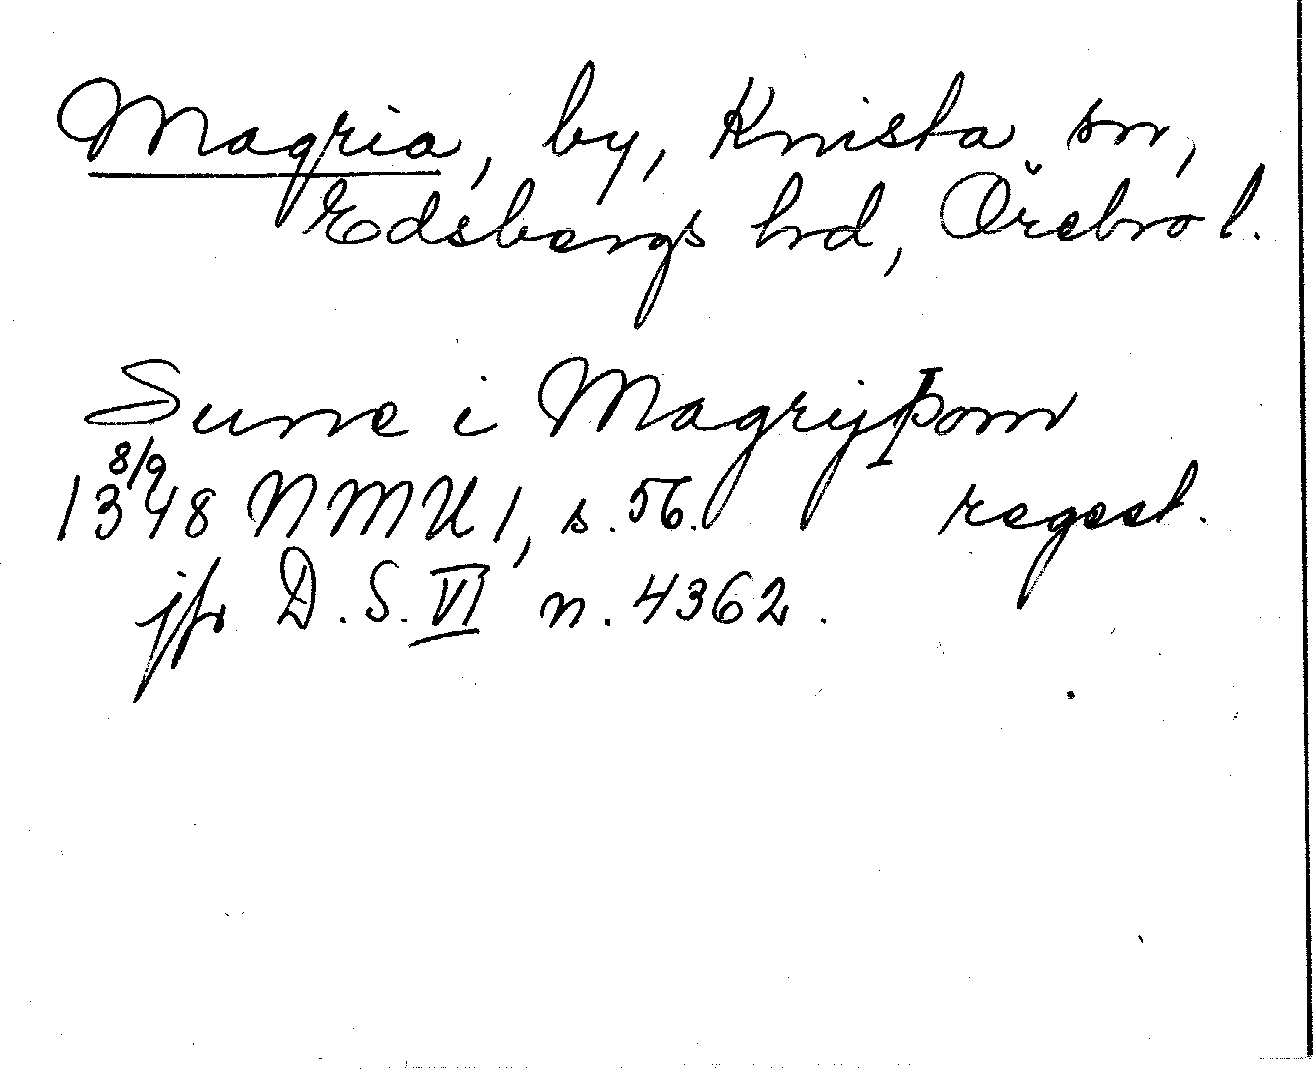 Magria, by, Knista sn,
Edsbergs hrd, Örebro l.
Sune i Magrijþom
8/9
1348 NMU 1, s. 56. regest.
jfr D. S. VI n. 4362.